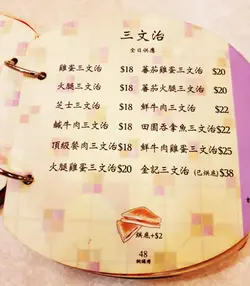 三文治
全日供應
雞蛋三文治 $18 蕃茄雞蛋三文治 $20
火腿三文治 $18 蕃茄火腿三文治 $20
芝士三文治 $18 鮮牛肉三文治 $22
鹹牛肉三文治 $18 田園吞拿魚三文治 $22
頂級餐肉三文治 $18 鮮牛肉雞蛋三文治 $25
火腿雞蛋三文治 $20 金記三文治 (已烘底) $38
烘底+$2
48